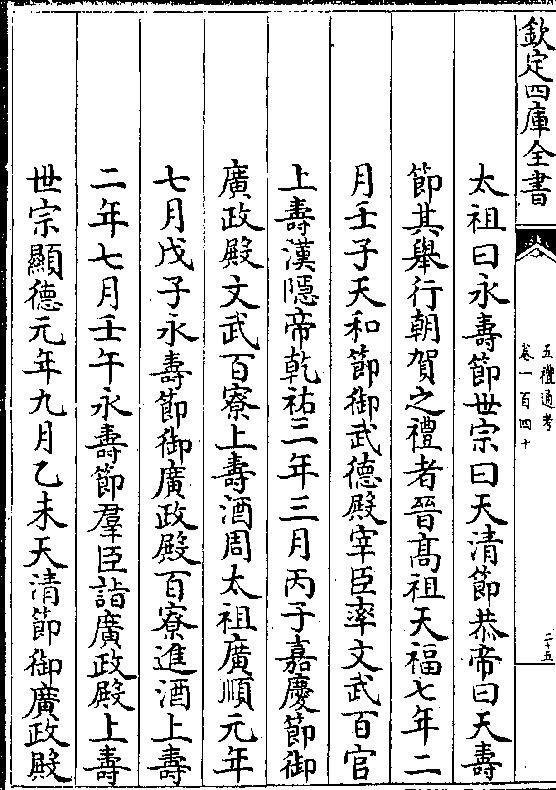 欽定四庫全書
五禮通考
卷一百四十
二十五
太祖曰永壽節世宗曰天清節恭帝曰天壽
節其舉行朝賀之禮者晉高祖天福七年二
月壬子天和節御武德殿宰臣率文武百官
上壽漢隱帝乾祐三年三月丙子嘉慶節御
廣政殿文武百寮上壽酒周太祖廣順元年
七月戊子永壽節御廣政殿百寮進酒上壽
二年七月壬午永壽節羣臣詣廣政殿上壽
世宗顯德元年九月乙未天清節御廣政殿